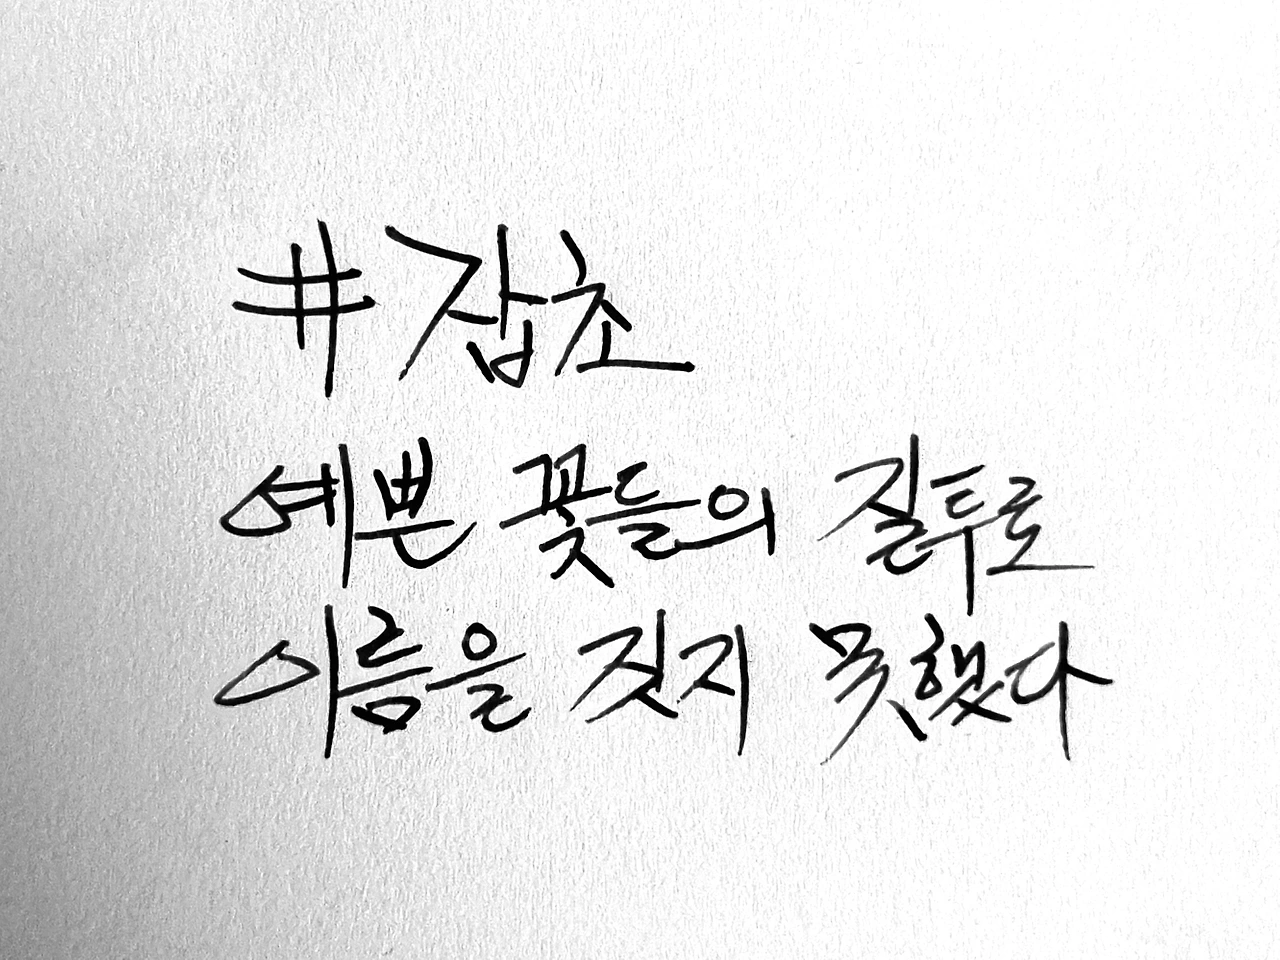 #잡초
예쁜 꽃들의 질투로
이름을 짓지 못했다